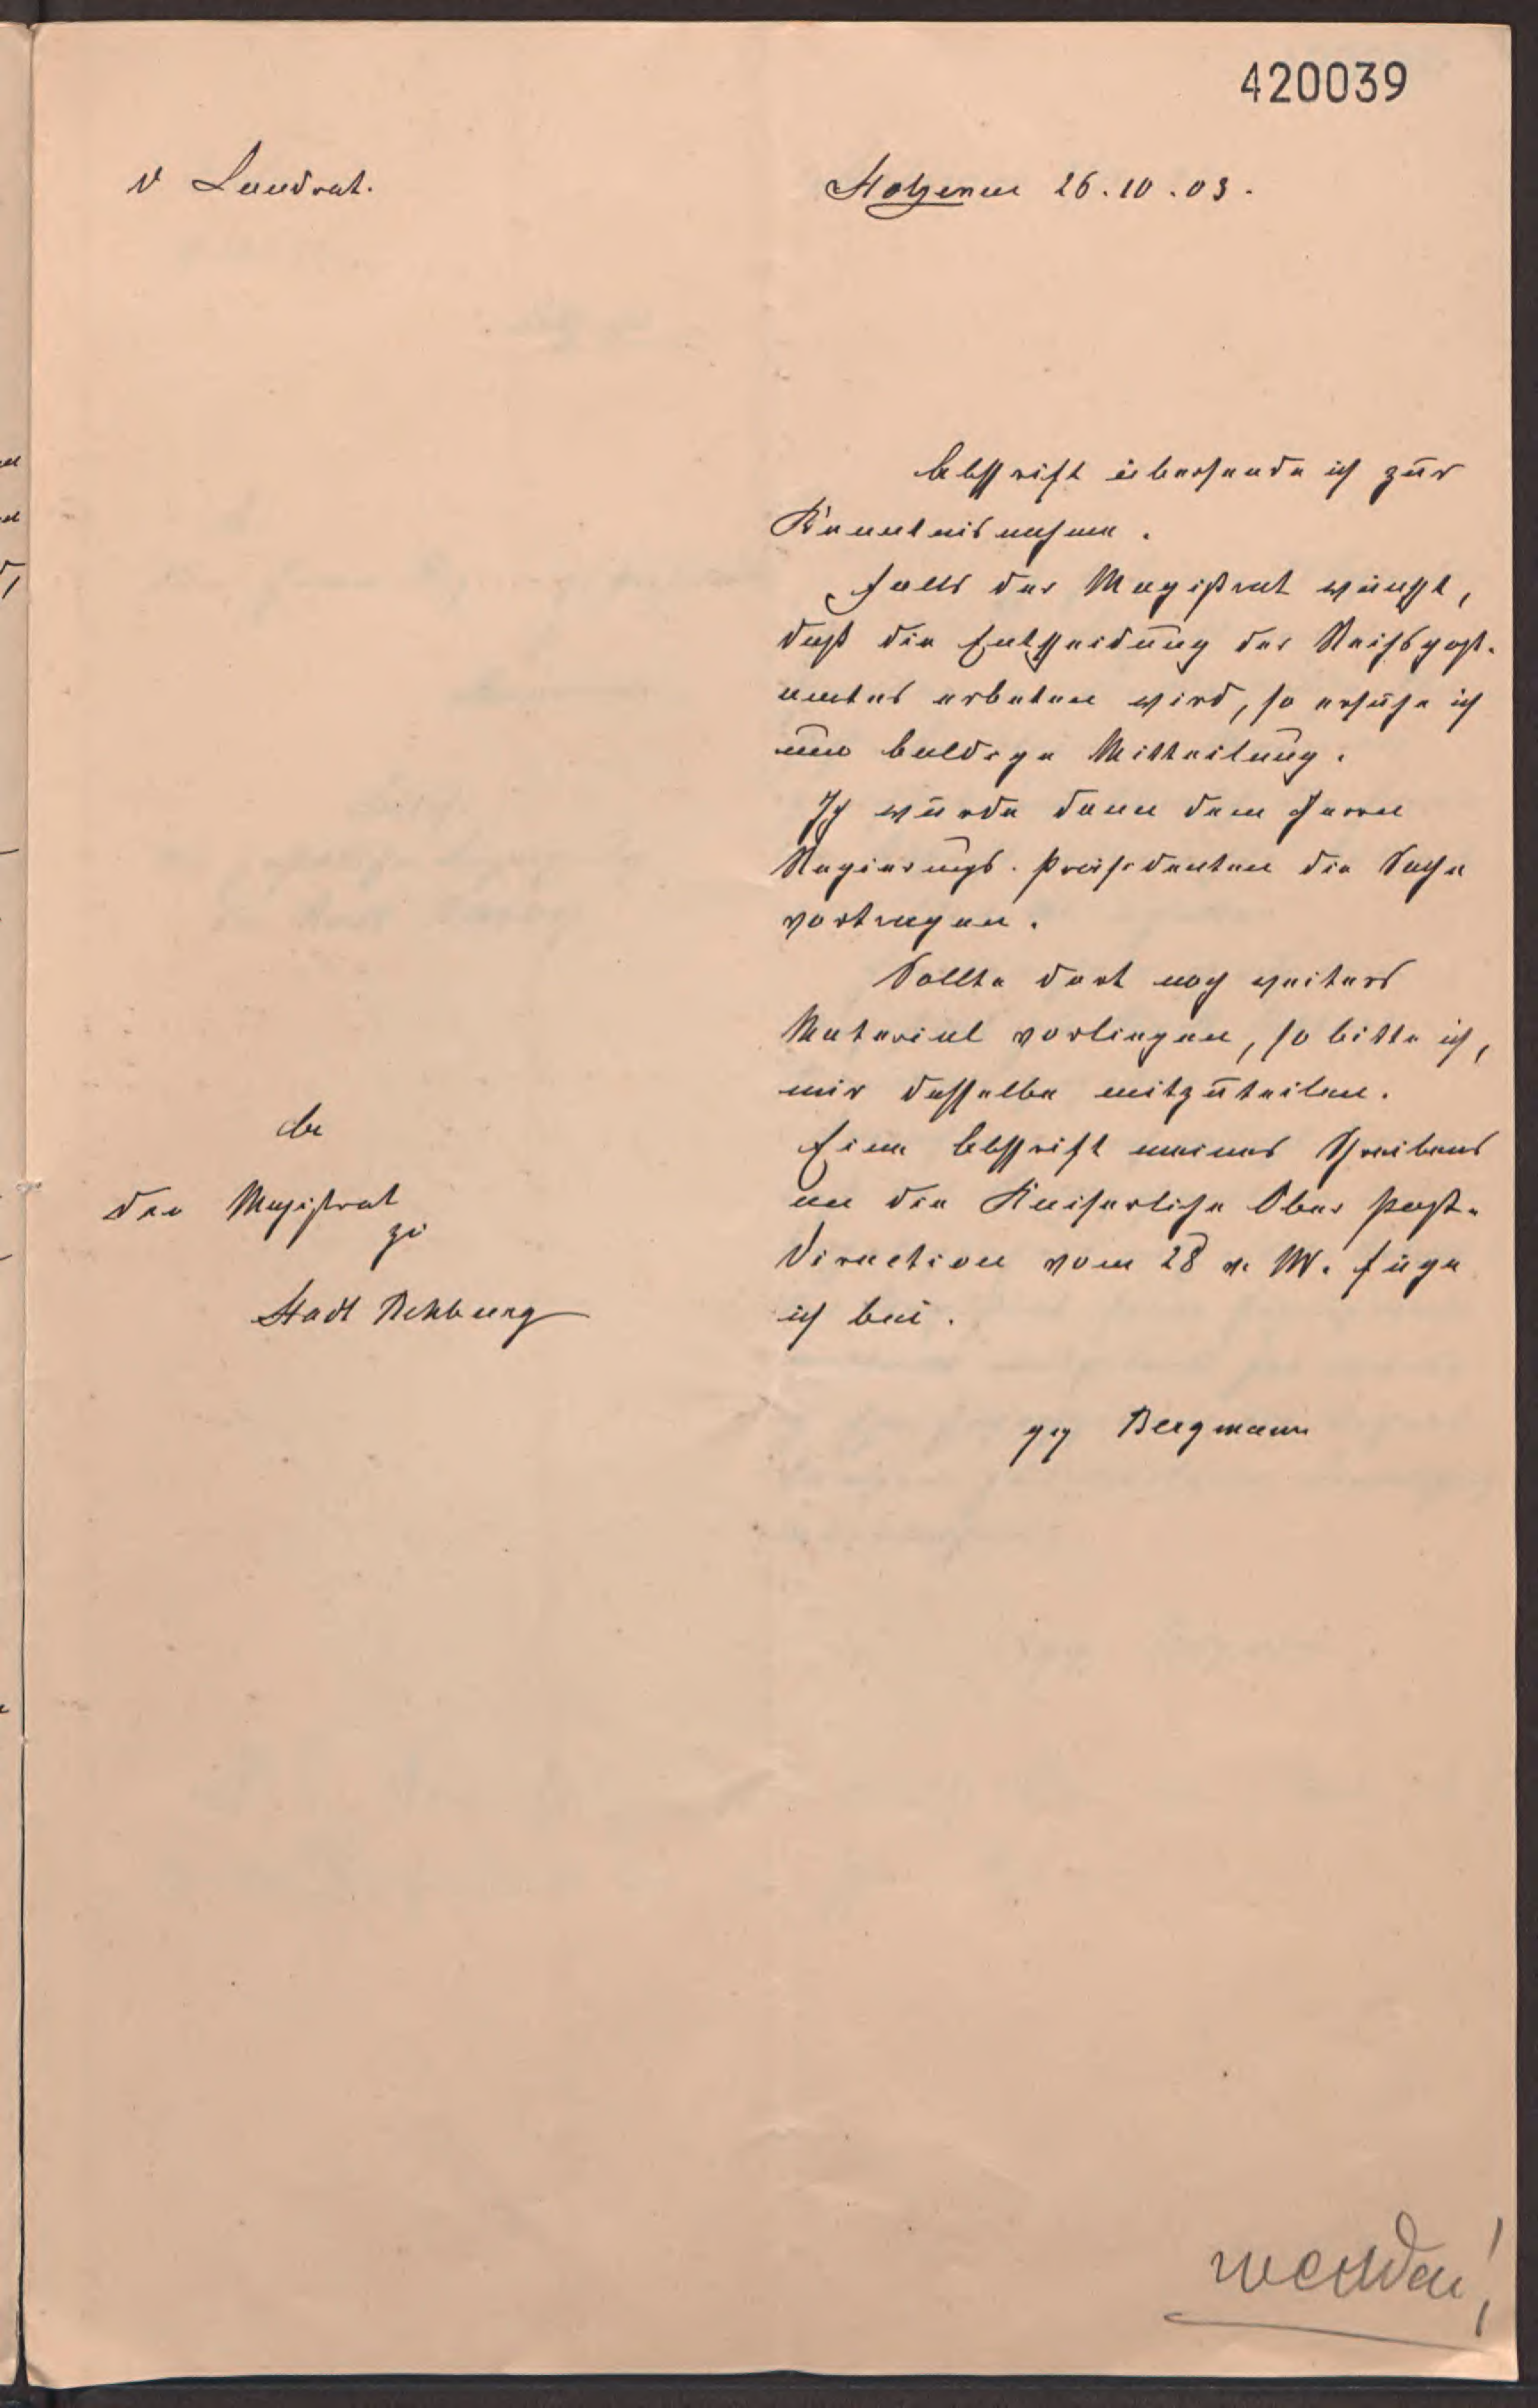 420039
D Landrat.
Stolzenau 26.10.03.
Abschrift übersende ich zur
Kenntnisnahme.
Falls der Magistrat wünscht,
daß die Entscheidung des Reichspost-
amtes erbeten wird, so ersuche ich
um baldige Mitteilung.
Ich würde dann dem Herrn
Regierungs-Präsidenten die Sache
vortragen.
Sollte dort noch weiteres
Material vorliegen, so bitte ich,
mir dasselbe mitzuteilen.
Eine Abschrift meines Schreibens
an die Kaiserliche Ober Post-
direction vom 28 v. M. füge
ich bei.
An
den Magistrat
zu
Stadt Rehburg
gez Bergmann
wenden!